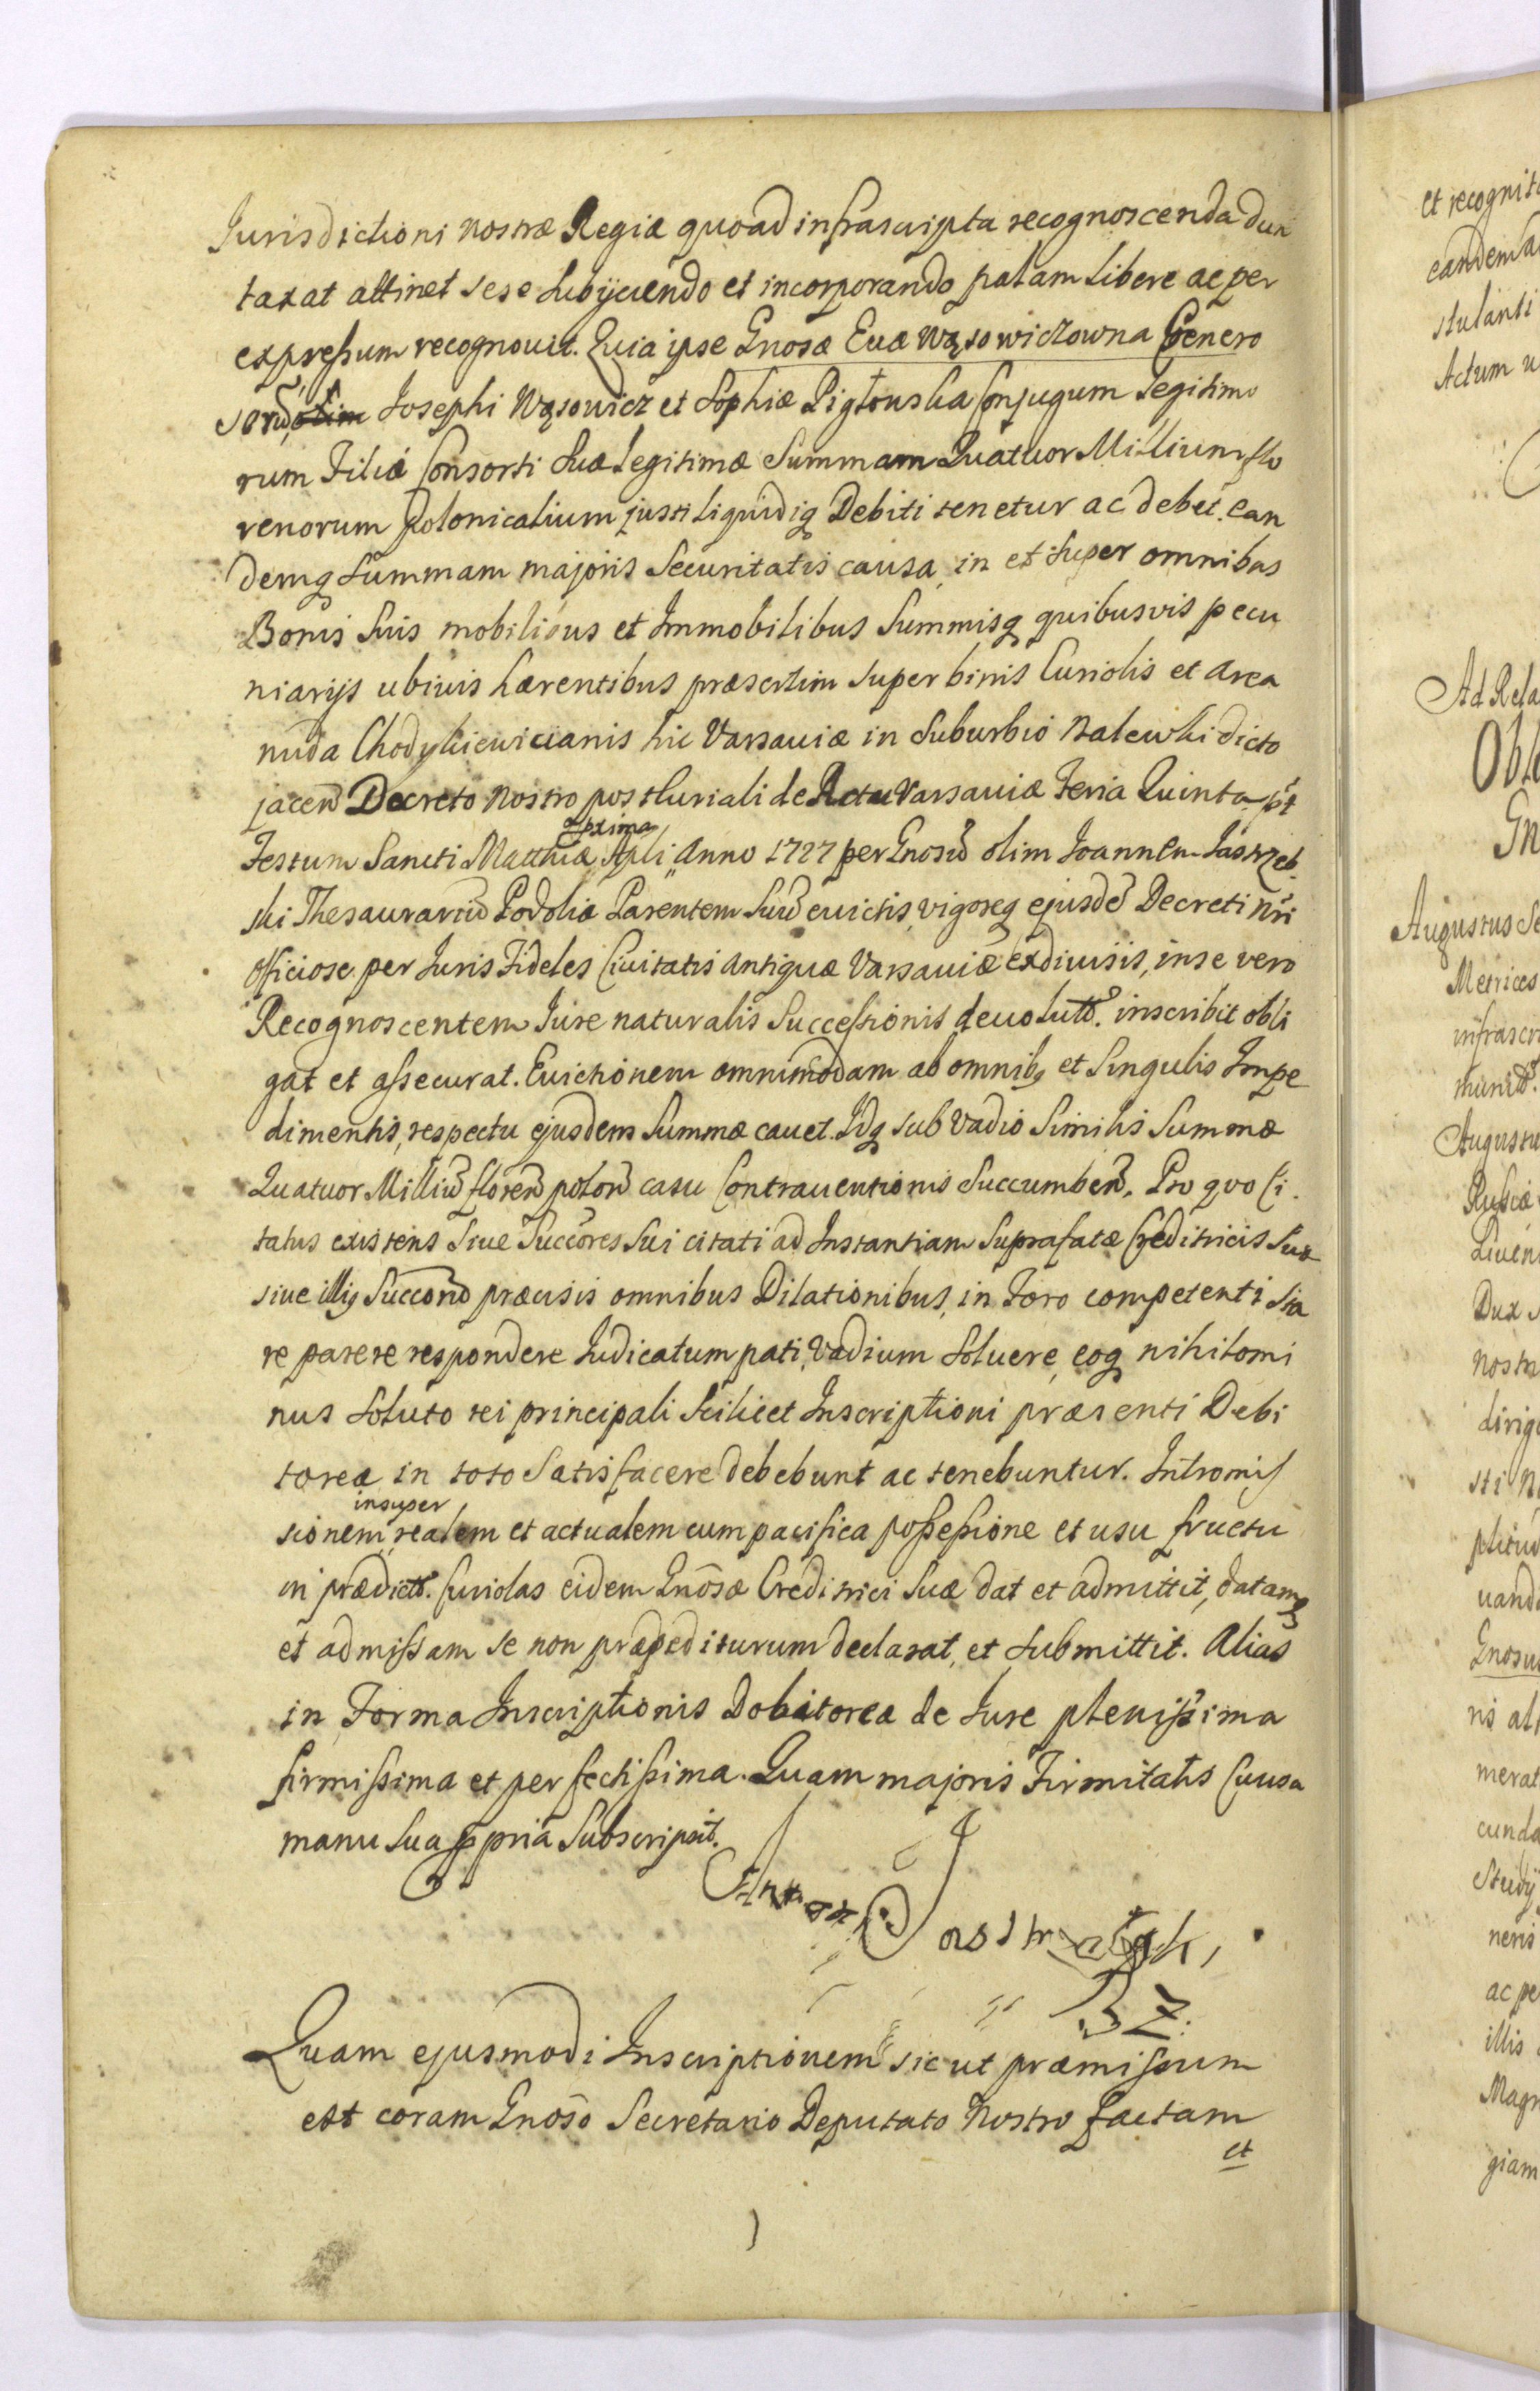 Jurisdictioni nostræ Regiæ quoad infrascripta recognoscenda dun
taxat attinet sese subijciendo et incorporando palam libere ac per
expressum recognovit. Quia ipse Gnosæ Evæ Wąsowiczowna Genero
sorū olim Josephi Wąsowicz et Sophiæ Piglowska Conjugum legitimo
rum Filiæ Consorti suæ legitimæ Summam Quatuor Millium flo
renorum polonicalium justi liquidiq Debiti tenetur ac debet. ean
demq summam majoris Securitatis causa, in et super omnibus
Bonis suis mobilibus et Immobilibus Summisq quibusvis pecu
niarijs ubivis hærentibus præsertim super binis Curiolis et area
nuda Chodykiewicianis hic Varsaviæ in Suburbio Nalewki dicto
jaceñ Decreto nostro postcuriali de Actu Varsaviæ Feria Quinta pt
proxima
Festum Sancti Matthiæ Apli, Anno 1727 per Gnosū olim Joannem Jastrzeb
ski Thesaurariū Podoliæ Parentem suū evictis, vigoreq ejusdē Decreti nri
officiose per Juris Fideles Civitatis Antiquæ Varsaviæ exdivisis, in se vero
Recognoscentem Jure naturalis Successionis devolut. inscribit obli
gat et assecurat. Evictionem omnimodam ab omnibq et singulis Impe
dimentis, respectu ejusdem Summæ cavet. Idq sub vadio similis Summæ
Quatuor Milliū floreñ poloñ casu Contraventionis Succumbeñ. Pro quo Ci
tatus existens sive Succores sui citati ad Instantiam Suprafatæ Creditricis suæ
sive illiq Succorū præcisis omnibus Dilationibus, in Foro competenti sta
re parere respondere Judicatum pati, Vadium solvere, eoq nihilomi
nus soluto rei principali scilicet Inscriptioni præsenti Debi
toreæ in toto Satisfacere debebunt ac tenebuntur. Intromis
insuper
sionem, realem et actualem cum pacifica possessione et usu fructu
in prædict. Curiolas eidem Gnosæ Creditrici suæ dat et admittit, datamq
et admissam se non præpediturum declarat, et submittit. Alias
in Forma Inscriptionis Debitoreæ de Jure plenissima
firmissima et perfectissima. Quam majoris Firmitatis Causa
manu sua ppria Subscripsit.
Jastrzębski
B Z.
Quam ejusmodi Inscriptionem sic ut præmissum
est coram Gnoso Secretario Deputato Nostro factam
et
et recognit
eandem
stulanti
Actum
Ad Rela
Obl
Gn
Augustus Se
Metrices
infrascri
munit
Augustu
Russiæ
Liven
Dux
Nostr
dirig
sti N
plitud
uand
Gnosu
ris al
merat
cunda
Study
neris
ac pe
illis
Magn
giam